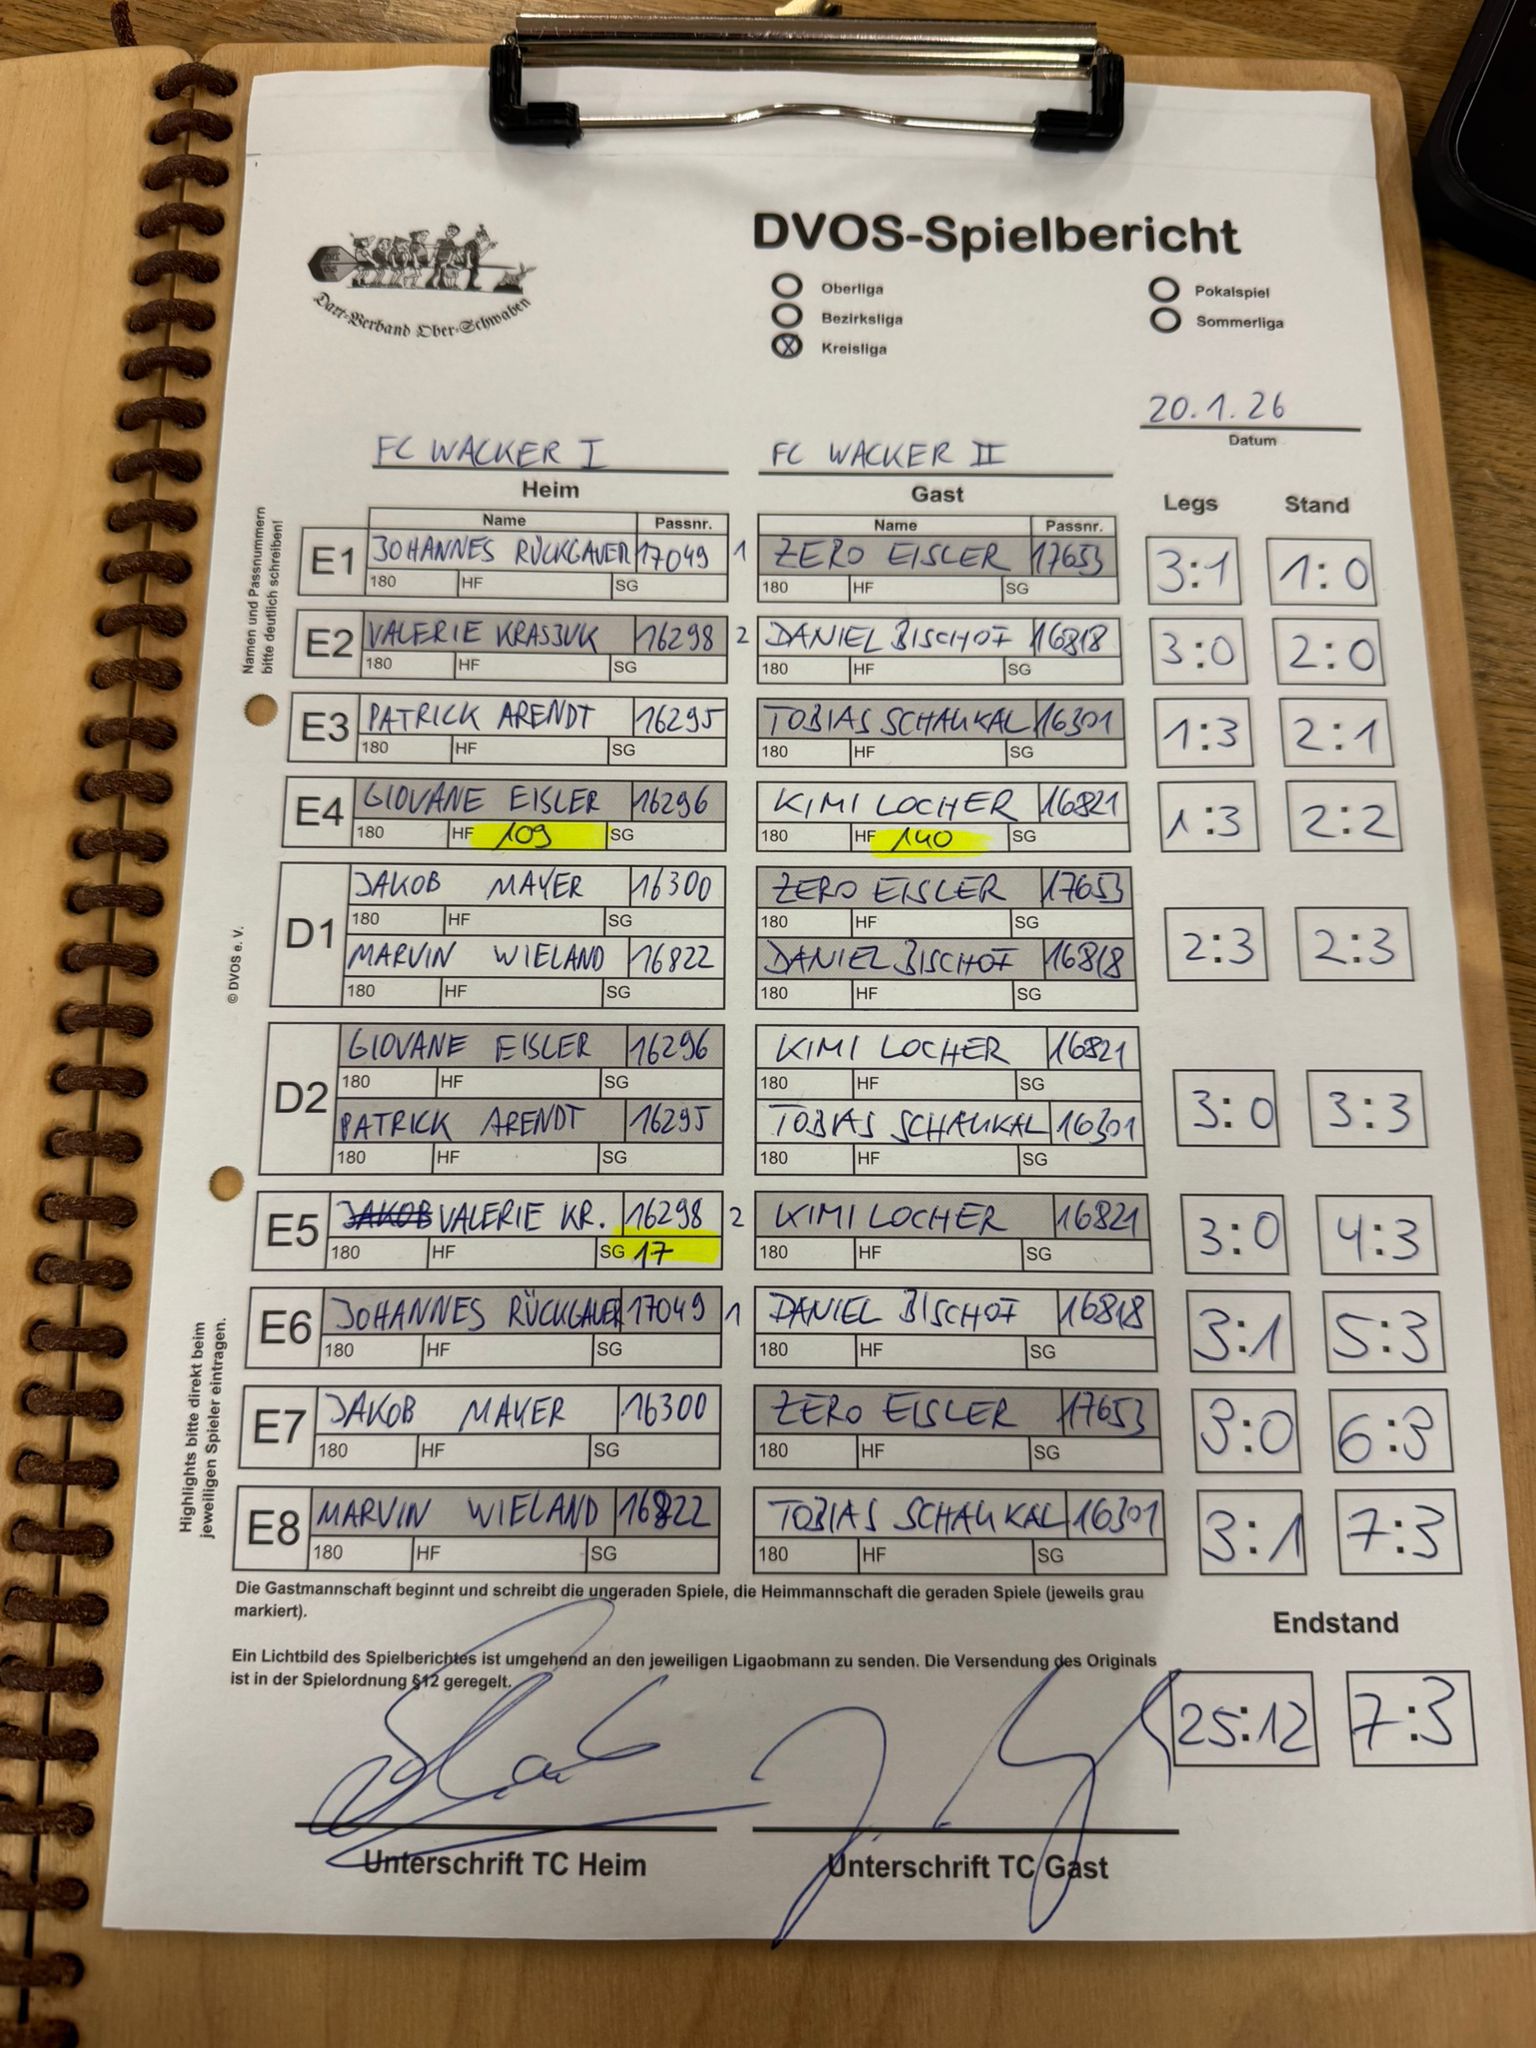 Dart-Verband Ober-Schwaben
DVOS-Spielbericht
Oberliga
Bezirksliga
Kreisliga
Pokalspiel
Sommerliga
20.1.26
Datum
FC WACKER I
FC WACKER II
Heim
Gast
Legs Stand
Namen und Passnummern
bitte deutlich schreiben!
Name Passnr. Name Passnr.
E1 JOHANNES RÜCKGAUER 17049 1 ZERO EISLER 17653 3:1 1:0
180 HF SG 180 HF SG
E2 VALERIE KRASZUK 16298 2 DANIEL BISCHOF 16818 3:0 2:0
180 HF SG 180 HF SG
E3 PATRICK ARENDT 16295 TOBIAS SCHAUKAL 16301 1:3 2:1
180 HF SG 180 HF SG
E4 GIOVANE EISLER 16296 KIMI LOCHER 16821 1:3 2:2
180 HF 109 SG 180 HF 140 SG
D1 JAKOB MAYER 16300 ZERO EISLER 17653 2:3 2:3
180 HF SG 180 HF SG
MARVIN WIELAND 16822 DANIEL BISCHOF 16818
180 HF SG 180 HF SG
© DVOS e. V.
D2 GIOVANE EISLER 16296 KIMI LOCHER 16821 3:0 3:3
180 HF SG 180 HF SG
PATRICK ARENDT 16295 TOBIAS SCHAUKAL 16301
180 HF SG 180 HF SG
E5 JAKOB VALERIE KR. 16298 2 KIMI LOCHER 16821 3:0 4:3
180 HF SG 17 180 HF SG
E6 JOHANNES RÜCKGAUER 17049 1 DANIEL BISCHOF 16818 3:1 5:3
180 HF SG 180 HF SG
E7 JAKOB MAYER 16300 ZERO EISLER 17653 3:0 6:3
180 HF SG 180 HF SG
E8 MARVIN WIELAND 16822 TOBIAS SCHAUKAL 16301 3:1 7:3
180 HF SG 180 HF SG
Highlights bitte direkt beim
jeweiligen Spieler eintragen.
Die Gastmannschaft beginnt und schreibt die ungeraden Spiele, die Heimmannschaft die geraden Spiele (jeweils grau
markiert).
Endstand
Ein Lichtbild des Spielberichtes ist umgehend an den jeweiligen Ligaobmann zu senden. Die Versendung des Originals
ist in der Spielordnung §12 geregelt.
25:12 7:3
Unterschrift TC Heim
Unterschrift TC Gast